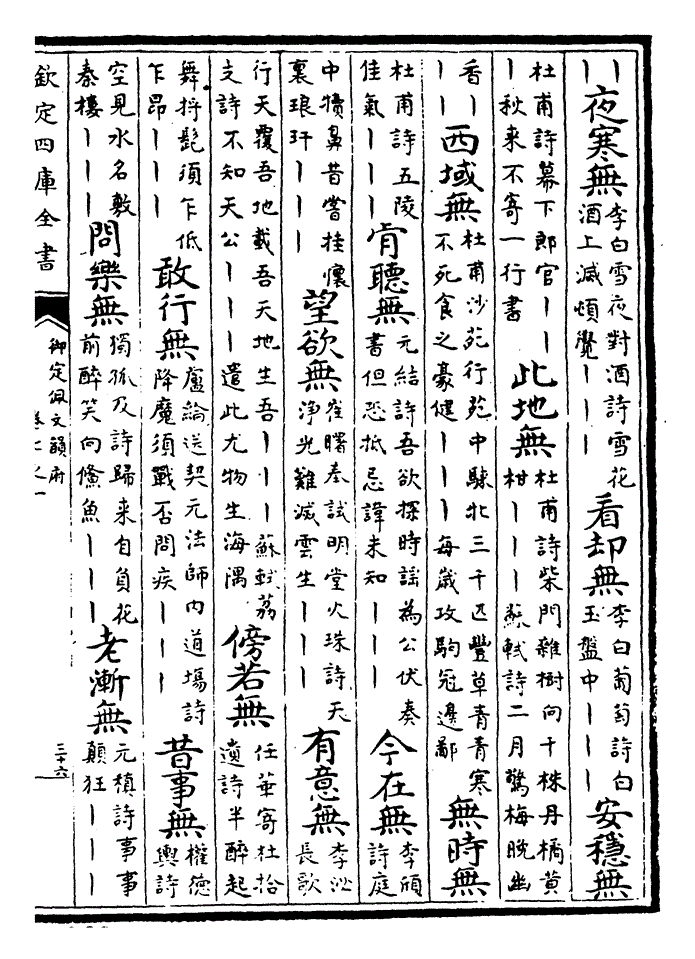 丨丨丨夜寒無李白雪夜對酒詩雪花酒上滅頓覺丨丨丨看却無李白葡萄詩白玉盤中丨丨丨安穩無
杜甫詩幕下郎官丨丨丨秋来不寄一行書此地無杜甫詩柴門雜樹向千株丹橘黄柑丨丨丨蘇軾詩二月驚梅晚幽
香丨丨丨西域無杜甫沙苑行苑中騋牝三千匹豐草青青寒不死食之豪健丨丨丨每歲攻駒冠邊鄙無時無
杜甫詩五陵佳氣丨丨丨肯聽無元結詩吾欲探時謡為公伏奏書但恐抵忌諱未知丨丨丨今在無李頎詩庭
中犢鼻昔嘗挂懷裏琅玕丨丨丨望欲無崔曙奉試明堂火珠詩天淨光難滅雲生丨丨丨有意無李泌長歌
行天覆吾地載吾天地生吾丨丨丨蘇軾荔支詩不知天公丨丨丨遣此尤物生海隅傍若無任華寄杜拾遺詩半醉起
舞捋髭須乍低乍昂丨丨丨敢行無盧論送契元法師内道場詩降魔須戰否問疾丨丨丨昔事無權德輿詩
空見水名敷秦樓丨丨丨問樂無獨孤及詩歸来自負花前醉笑向鯈魚丨丨丨老漸無元稹詩事事顛狂丨丨丨
欽定四庫全書
御定佩文韻府
卷七之一
三十六